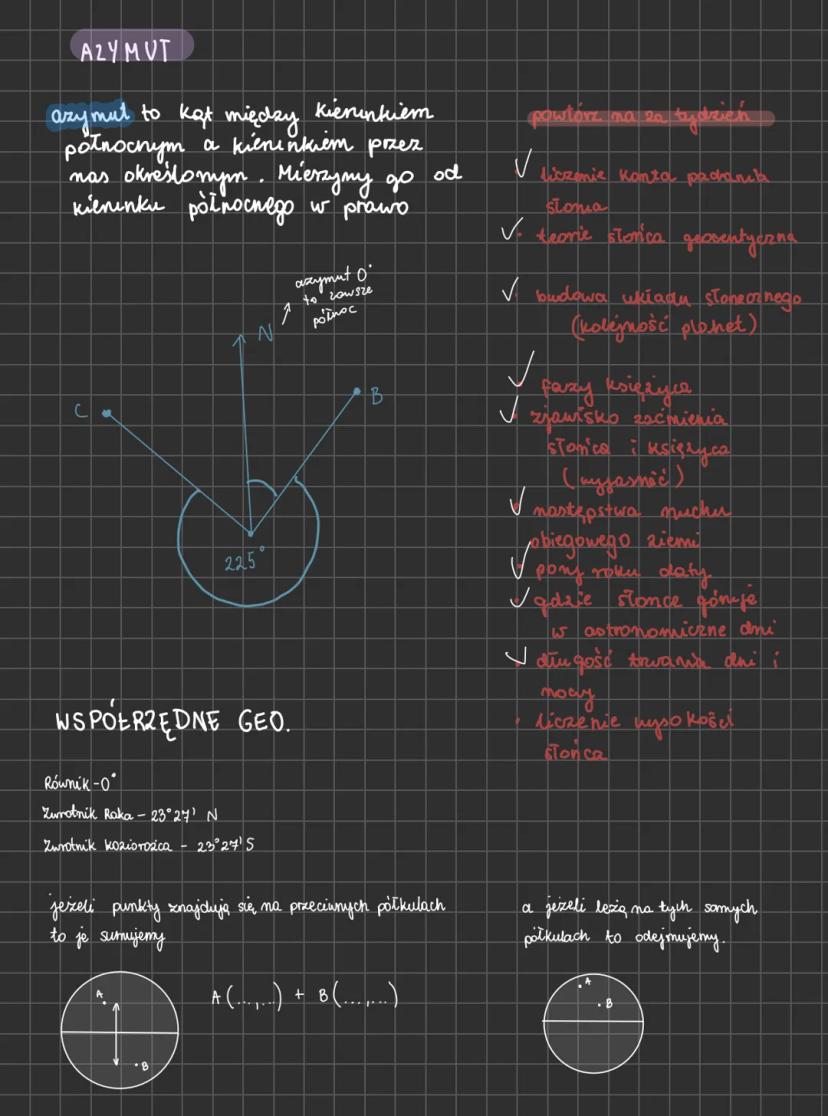 AZYMUT
azymut to kąt między kierunkiem
północnym a kierunkiem przez
nas określonym. Mierzymy go od
kierunku północnego w prawo
azymut 0°
to zawsze
północ
N
C
B
225°
powtórz na za tydzień
liczenie konta padania
słońca
teorie słońca geocentyczna
budowa układu słonecznego
(kolejność planet)
fazy księżyca
zjawisko zaćmienia
słońca i księżyca
(wyjaśnić)
następstwa ruchu
obiegowego ziemi
pory roku daty
gdzie słońce góruje
w astronomiczne dni
długość trwania dni i
nocy
liczenie wysokości
słońca
WSPÓŁRZĘDNE GEO.
Równik - 0°
Zwrotnik Raka - 23°27' N
Zwrotnik Koziorożca - 23°27' S
jeżeli punkty znajdują się na przeciwnych półkulach
to je sumujemy
A
B
A (...,...) + B (...,...)
a jeżeli leżą na tych samych
półkulach to odejmujemy.
A
B